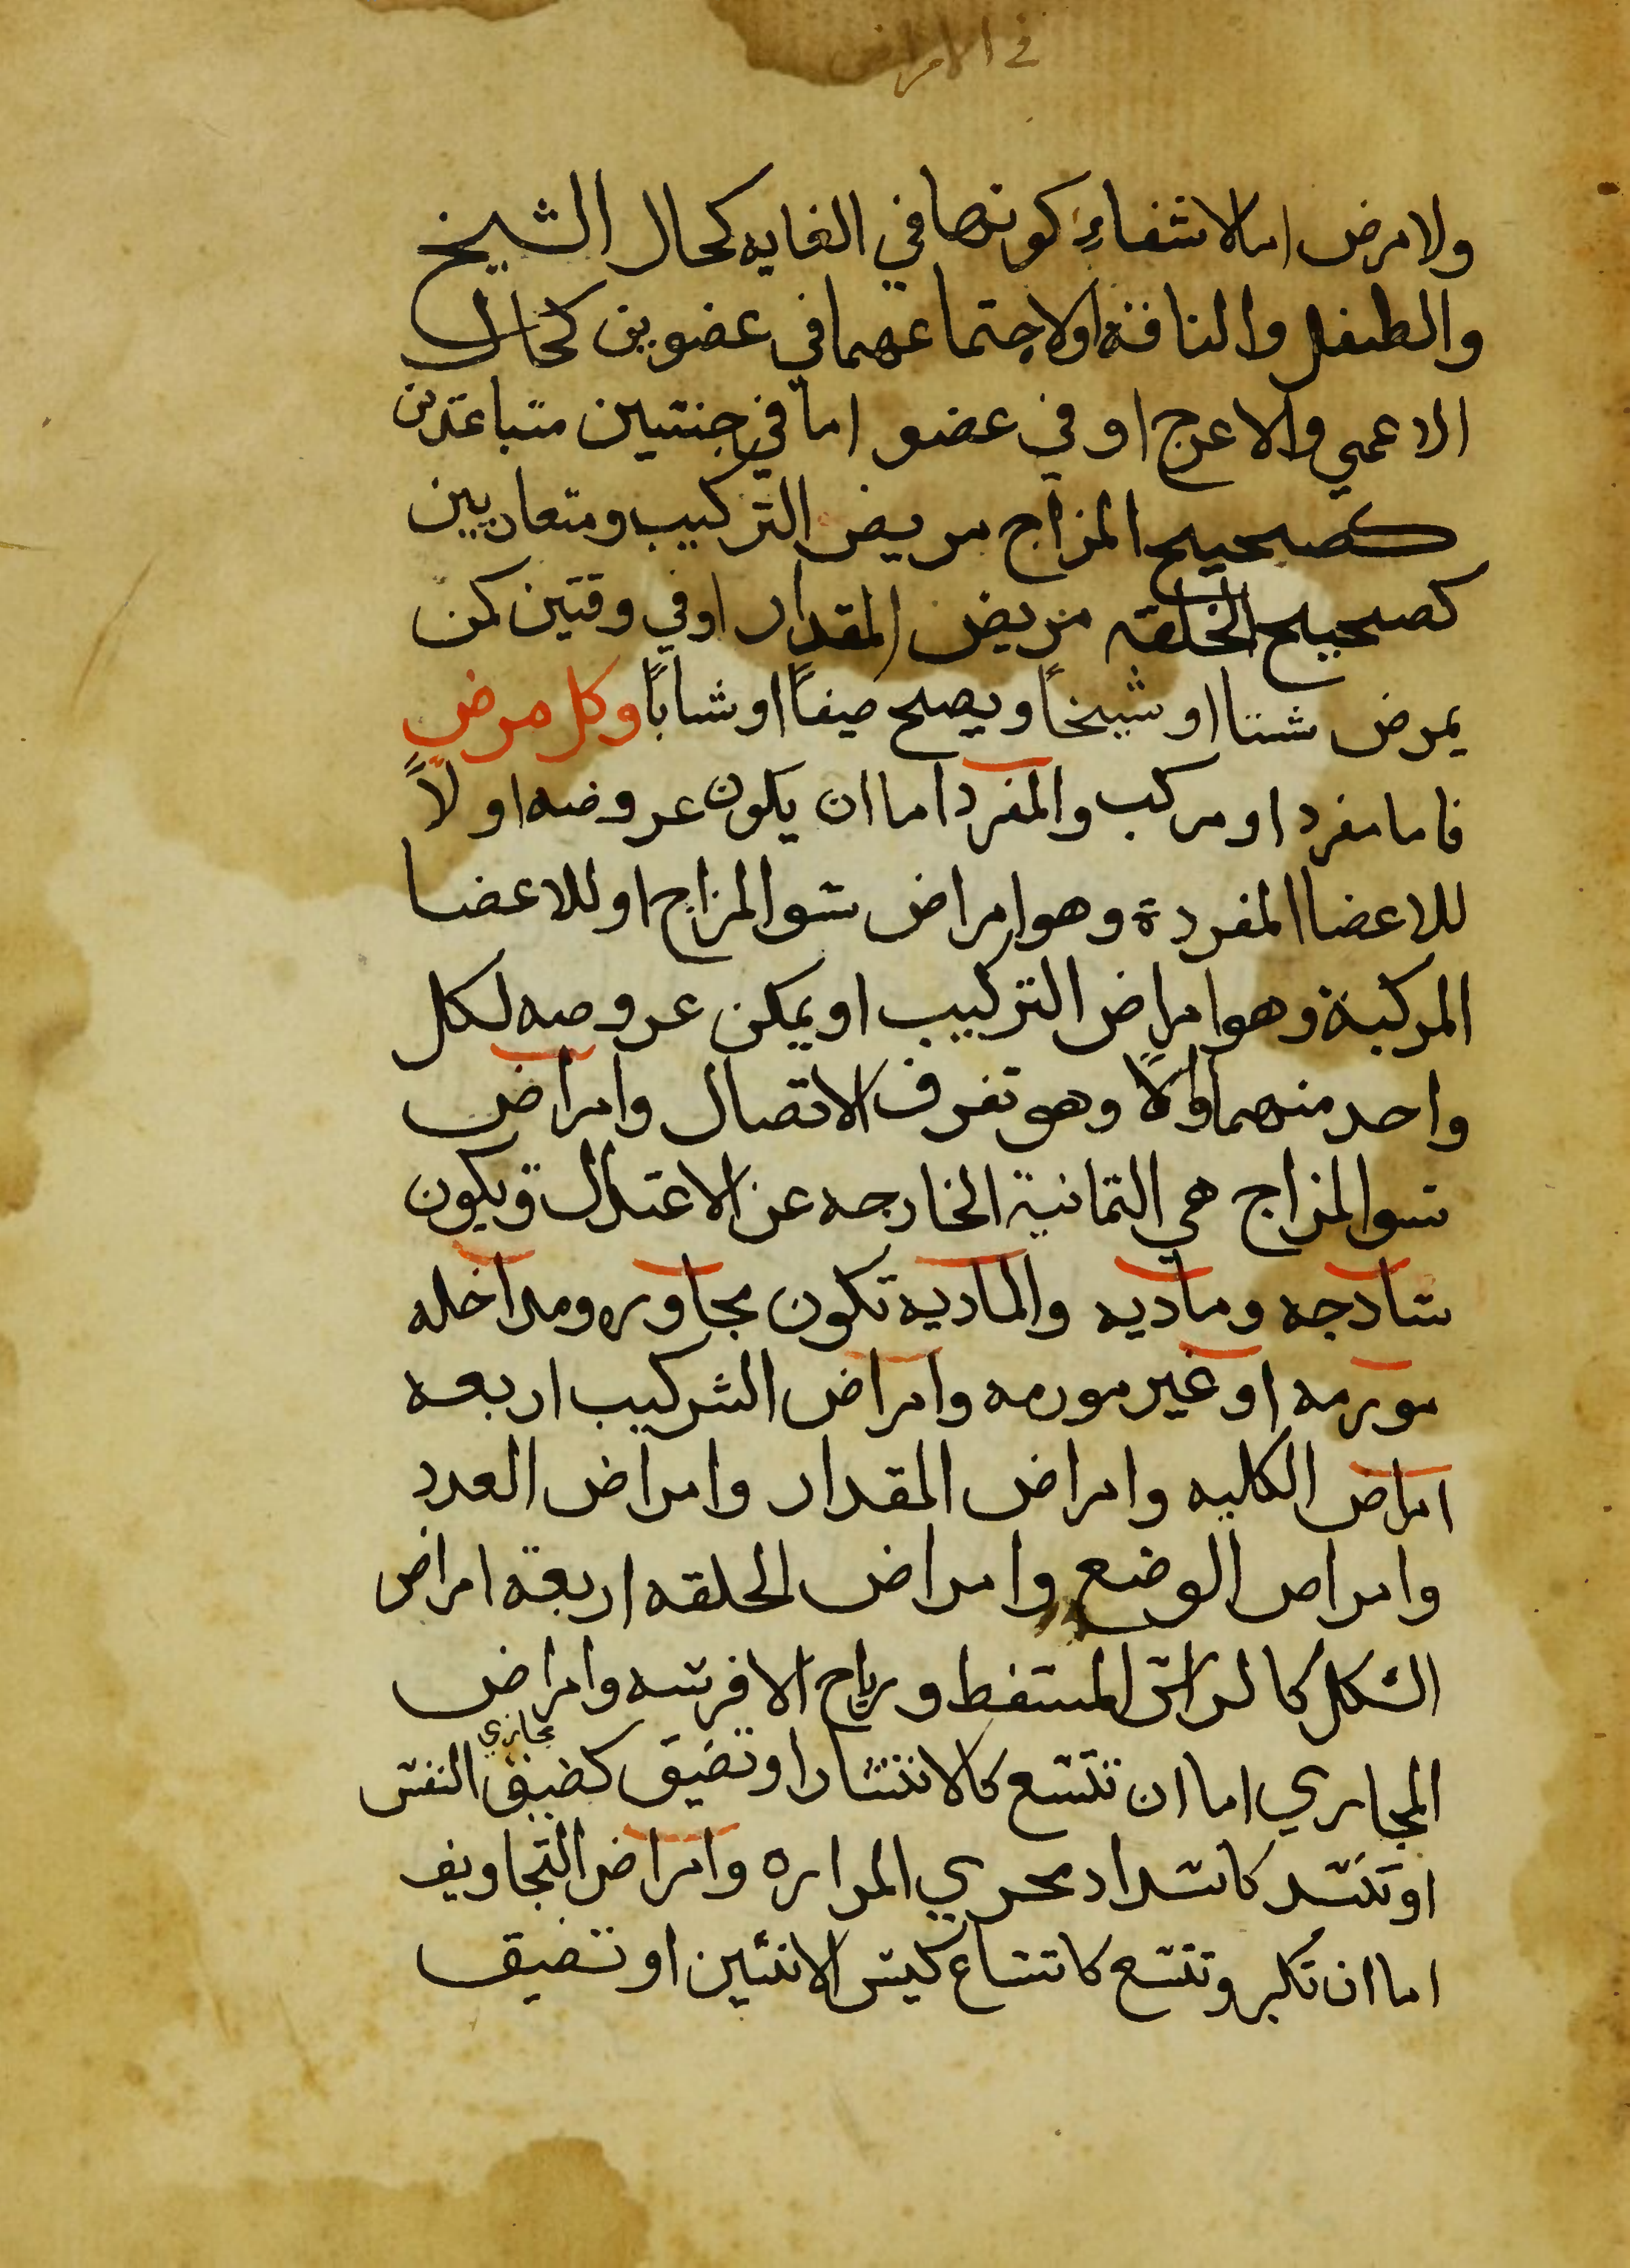 في الامراض
ولا مرض اما لانتفاءِ كونهما في الغايه كحال الشيخ
والطفل والناقه اولاجتماعهما في عضوين كحال
الاعمي والاعرج او في عضو اما في جنتين متباعدين
كصحيح المزاج مريض التركيب ومتعاربين
كصحيح الخلقه مريض المقدار او في وقتين كمن
يمرض شتا او شيخاً ويصح صيفاً او شاباً وكل مرض
فاما مفرد او مركب والمفرد اما ان يكون عروضه اولاً
للاعضا المفردة وهو امراض سو المزاج او للاعضا
المركبة وهو امراض التركيب او يمكن عروضه لكل
واحد منهما اولاً وهو تفرق الاتصال وامراض
سو المزاج هي الثمانية الخارجه عن الاعتدال وتكون
سادجه وماديه والماديه تكون مجاوره ومداخله
مورمه او غير مورمه وامراض التركيب اربعه
امراض الكليه وامراض المقدار وامراض العدد
وامراض الوضع وامراض الخلقه اربعة امراض
الشكل كالراس المسفط ورياح الافرسه وامراض
المجاري اما ان تتسع كالانتشار او تضيق كضيق مجاري النفس
او تنسد كانسداد مجري المراره وامراض التجاويف
اما ان تكبر وتتسع كاتساع كيس الانثيين او تضيق